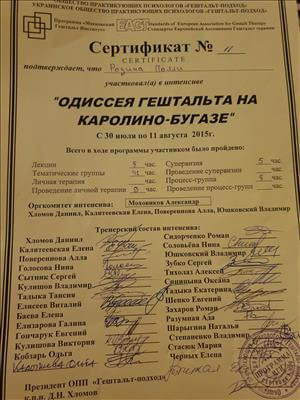 ОБЩЕСТВО ПРАКТИКУЮЩИХ ПСИХОЛОГОВ «ГЕШТАЛЬТ-ПОДХОД»
УКРАИНСКОЕ ОБЩЕСТВО ПРАКТИКУЮЩИХ ПСИХОЛОГОВ «ГЕШТАЛЬТ-ПОДХОД»
Программа «Московский Гештальт Институт»
EAGT
Standards of European Association for Gestalt Therapy
Стандарты Европейской Ассоциации Гештальт терапии
Сертификат № 11
CERTIFICATE
подтверждает, что Родина Полли
участвовал(а) в интенсиве
"ОДИССЕЯ ГЕШТАЛЬТА НА
КАРОЛИНО-БУГАЗЕ"
С 30 июля по 11 августа 2015г.
Всего в ходе программы участником было пройдено:
Лекции 8 час. Супервизия 5 час.
Тематические группы час. Проведение супервизии час.
Личная терапия час. Процесс-группа 8 час.
Проведение личной терапии 0 час. Проведение процесс-групп час.
Оргкомитет интенсива: Моховиков Александр
Хломов Даниил, Калитеевская Елена, Поверенпова Алла, Юшковский Владимир
Тренерский состав интенсива:
Хломов Даниил Сидоренко Роман
Калитеевская Елена Соловьёва Нина
Повереннова Алла Юшковский Владимир
Голосова Нина Зубко Сергей
Сытник Сергей Тихолаз Алексей
Кулишов Владимир Синицына Оксана
Тадыка Таисия Тадыка Екатерина
Елисеев Виталий Шенко Евгений
Баева Елена Захаров Роман
Елизарова Галина Разумная Ада
Гончарук Евгений Шарыгина Наталья
Кулишова Виктория Степаненко Владимир
Кобзарь Ольга Стасюк Мария
Ольга Черных Елена
Президент ОПП «Гештальт-подход»
к.п.н. Д.Н. Хломов